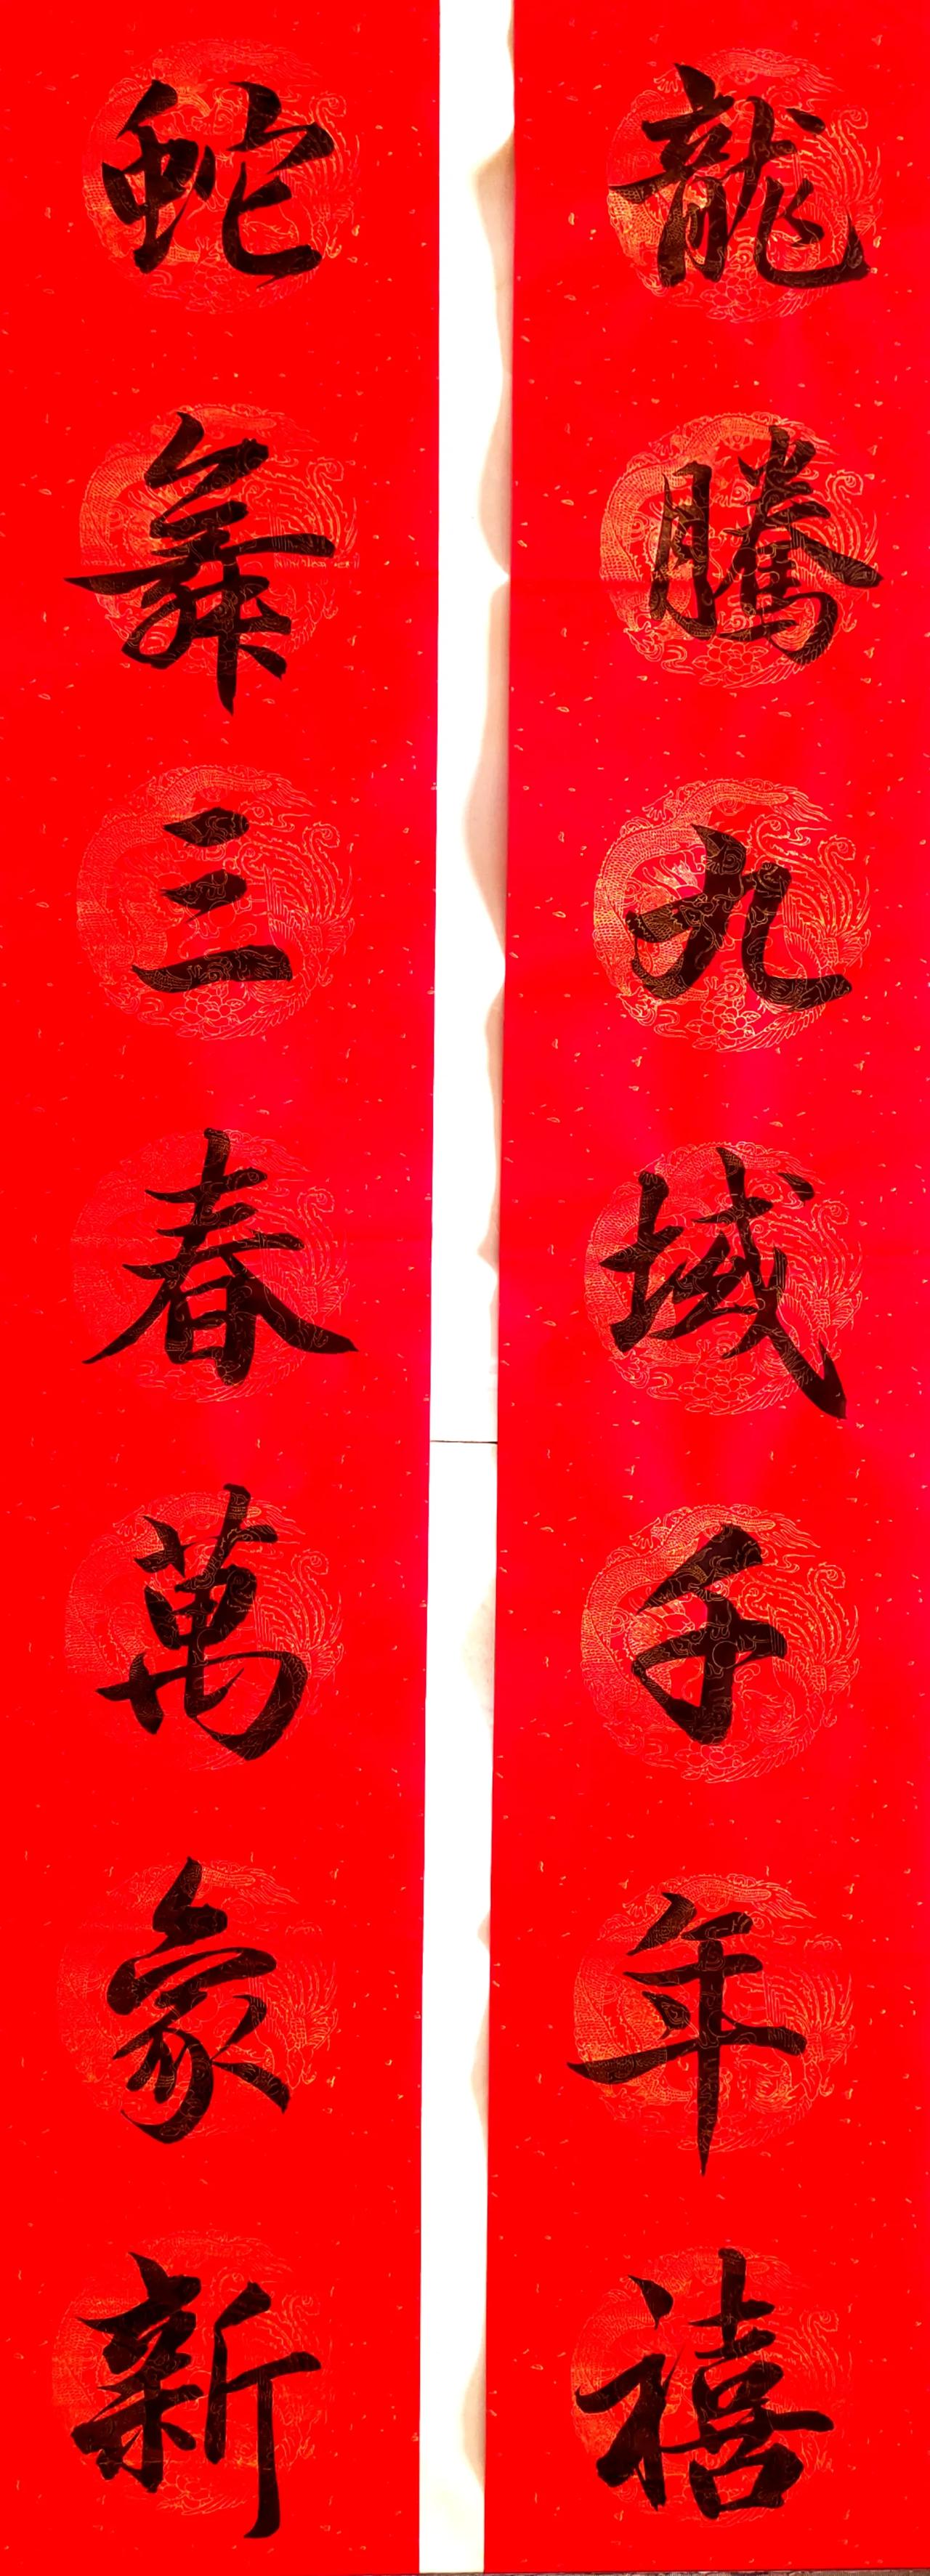 龍騰九域千年禧
蛇舞三春萬象新